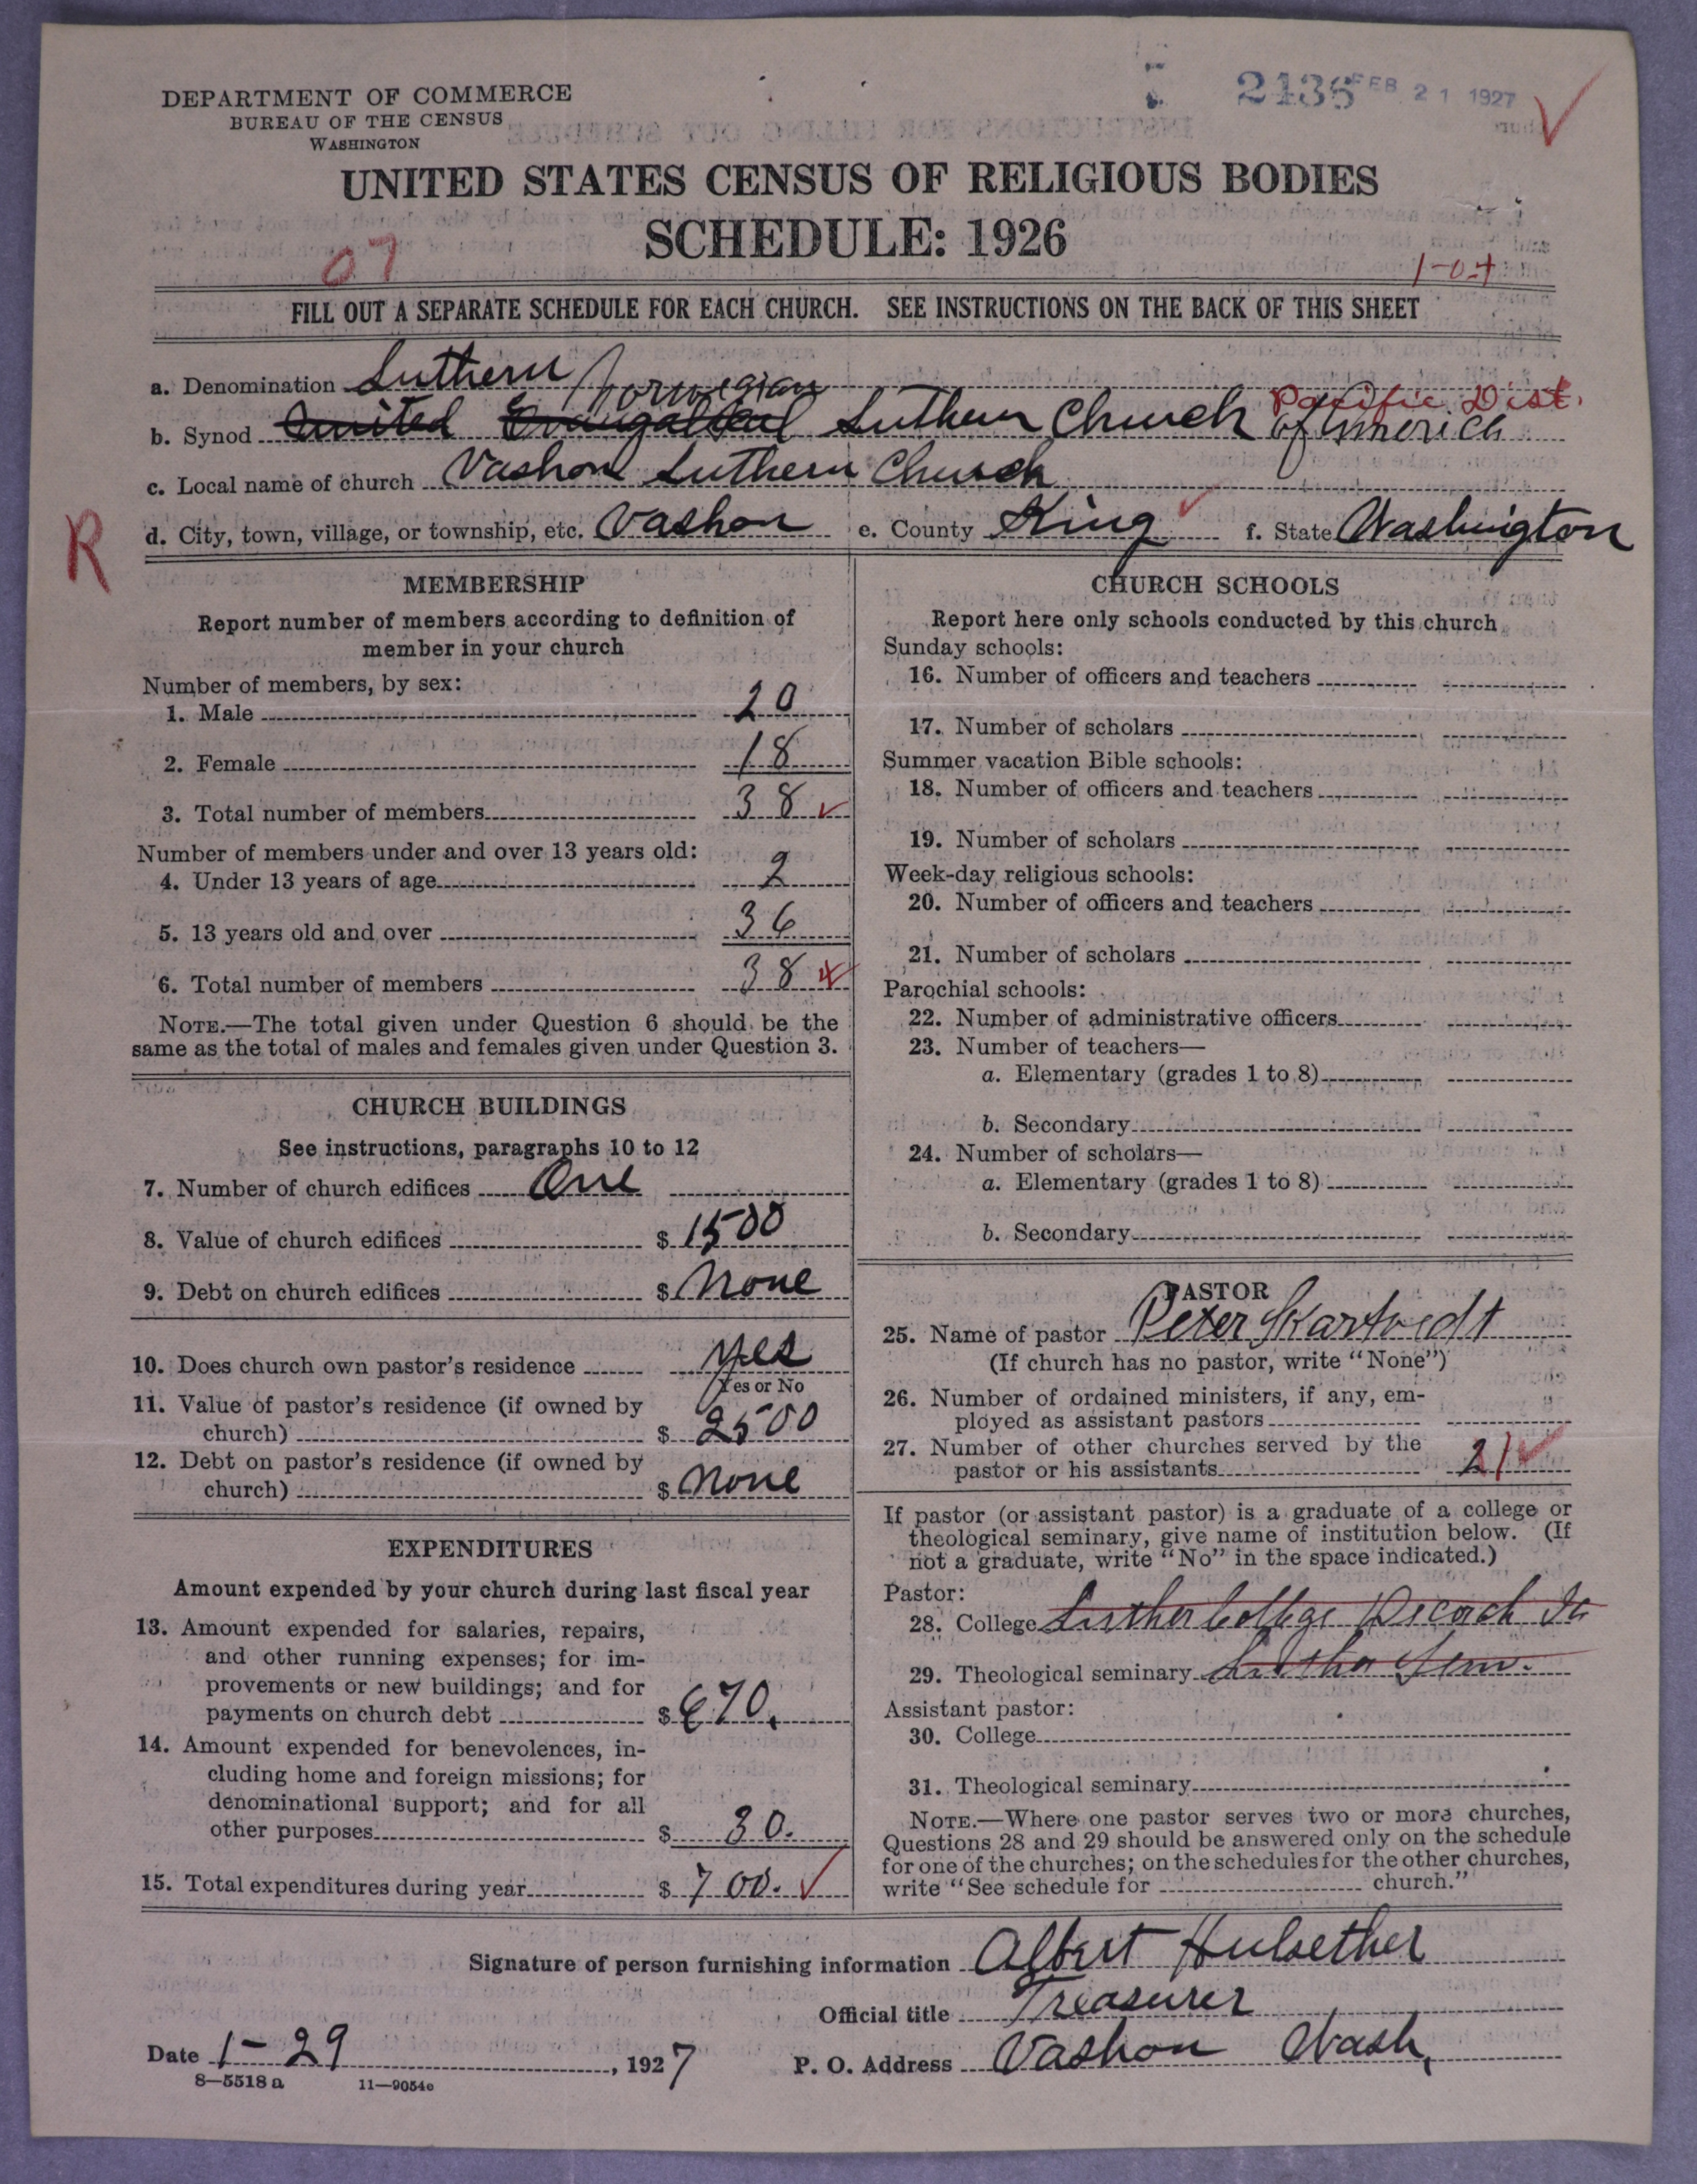 DEPARTMENT OF COMMERCE
BUREAU OF THE CENSUS
WASHINGTON
2436 FEB 21 1927
UNITED STATES CENSUS OF RELIGIOUS BODIES
SCHEDULE: 1926
07
1-04
FILL OUT A SEPARATE SCHEDULE FOR EACH CHURCH. SEE INSTRUCTIONS ON THE BACK OF THIS SHEET
a. Denomination Luthern
Norwegian Pacific Dist.
b. Synod United Evangelical Luthern Church of America
c. Local name of church Vashon Luthern Church
R
d. City, town, village, or township, etc. Vashon e. County King f. State Washington
MEMBERSHIP
Report number of members according to definition of
member in your church
Number of members, by sex:
1. Male 20
2. Female 18
3. Total number of members 38
Number of members under and over 13 years old:
4. Under 13 years of age 2
5. 13 years old and over 36
6. Total number of members 38
NOTE.—The total given under Question 6 should be the
same as the total of males and females given under Question 3.
CHURCH BUILDINGS
See instructions, paragraphs 10 to 12
7. Number of church edifices One
8. Value of church edifices $ 1500
9. Debt on church edifices $ None
10. Does church own pastor's residence yes
Yes or No
11. Value of pastor's residence (if owned by
church) $ 2500
12. Debt on pastor's residence (if owned by
church) $ None
EXPENDITURES
Amount expended by your church during last fiscal year
13. Amount expended for salaries, repairs,
and other running expenses; for im-
provements or new buildings; and for
payments on church debt $ 670.
14. Amount expended for benevolences, in-
cluding home and foreign missions; for
denominational support; and for all
other purposes $ 30.
15. Total expenditures during year $ 700.
CHURCH SCHOOLS
Report here only schools conducted by this church
Sunday schools:
16. Number of officers and teachers
17. Number of scholars
Summer vacation Bible schools:
18. Number of officers and teachers
19. Number of scholars
Week-day religious schools:
20. Number of officers and teachers
21. Number of scholars
Parochial schools:
22. Number of administrative officers
23. Number of teachers—
a. Elementary (grades 1 to 8)
b. Secondary
24. Number of scholars—
a. Elementary (grades 1 to 8)
b. Secondary
PASTOR
25. Name of pastor Peter Skartvedt
(If church has no pastor, write "None")
26. Number of ordained ministers, if any, em-
ployed as assistant pastors
27. Number of other churches served by the
pastor or his assistants 2
If pastor (or assistant pastor) is a graduate of a college or
theological seminary, give name of institution below. (If
not a graduate, write "No" in the space indicated.)
Pastor:
28. College Luther College Decorah Ia
29. Theological seminary Luther Sem.
Assistant pastor:
30. College
31. Theological seminary
NOTE.—Where one pastor serves two or more churches,
Questions 28 and 29 should be answered only on the schedule
for one of the churches; on the schedules for the other churches,
write "See schedule for church."
Signature of person furnishing information Albert Hulsether
Official title Treasurer
Date 1-29, 1927 P. O. Address Vashon Wash.
8—5518 a 11—9054c